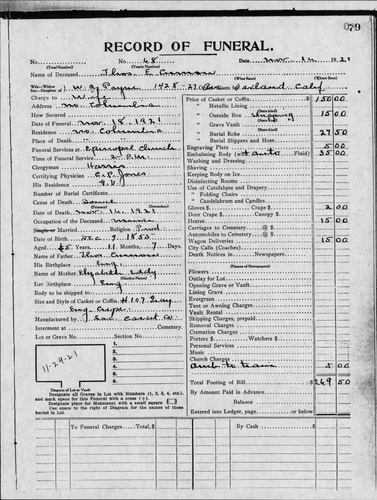 79
RECORD OF FUNERAL.
No. No. 48 Date Nov 14 1921
(Total Number) (Yearly Number)
Name of Deceased Thos. E.
(What Race) (Where Born)
W. G. Payne 1428 - 27 Oakland Calif
Charge to Wife
Address No. Columbia
Date of Funeral Nov. 18 - 1921
Residence No. Columbia
Place of Death
Funeral Services at Episcopal Church
Time of Funeral Service 2 P.M.
Clergyman Harris
Certifying Physician E. P. Jones
His Residence
Number of Burial Certificate
Cause of Death
(Primary) (Secondary)
Date of Death Nov. 14, 1921
Occupation of the Deceased
Single or Married Religion Prod
Date of Birth Dec. 7, 1855
Aged 65 Years 11 Months 7 Days.
Name of Father Thos
His Birthplace Eng
Name of Mother Elizabeth Eddy
(Maiden Name)
Her Birthplace Eng
Body to be shipped to
Size and Style of Casket or Coffin #107 Gray
Eng. Crepe
Manufactured by Casket Co.
Interment at Cemetery.
Lot or Grave No. Section No.
1
2
3
4
5
6
11-29-21
Diagram of Lot or Vault
Designate all Graves in Lot with Numbers (1, 2, 3, 4, etc.), and mark space for this Funeral with a cross (+).
Designate place for Monument with a small square
Use space to the right of Diagram for the names of those buried in Lot.
Price of Casket or Coffin $ 150 00
" Metallic Lining
" Outside Box Shipping 15 00
(State kind)
" Grave Vault
(State kind)
" Burial Robe 27 50
" Burial Slippers and Hose
Engraving Plate 5 00
Embalming Body (with Fluid) 35 00
Washing and Dressing
Shaving
Keeping Body on Ice
Disinfecting Rooms
Use of Catafalque and Drapery
" Folding Chairs
" Candelabrum and Candles
Gloves $ Crape $ 2 00
Door Crape Canopy $
Hearse 15 00
Carriages to Cemetery @ $
Automobiles to Cemetery @ $
Wagon Deliveries 15 00
Death Notices in Newspapers
(Names of Newspapers)
Flowers
Outlay for Lot
Opening Grave or Vault
Lining Grave
Evergreen
Tent or Awning Charges
Vault Rental
Shipping Charges, prepaid
Removal Charges
Cremation Charges
Porters $ Watchers $
Personal Services
Music
Church Charges
Amb to train 5 00
Total Footing of Bill $ 269 50
By Amount Paid in Advance
Balance
Entered into Ledger, page or below
To Funeral Charges Total, $ By $